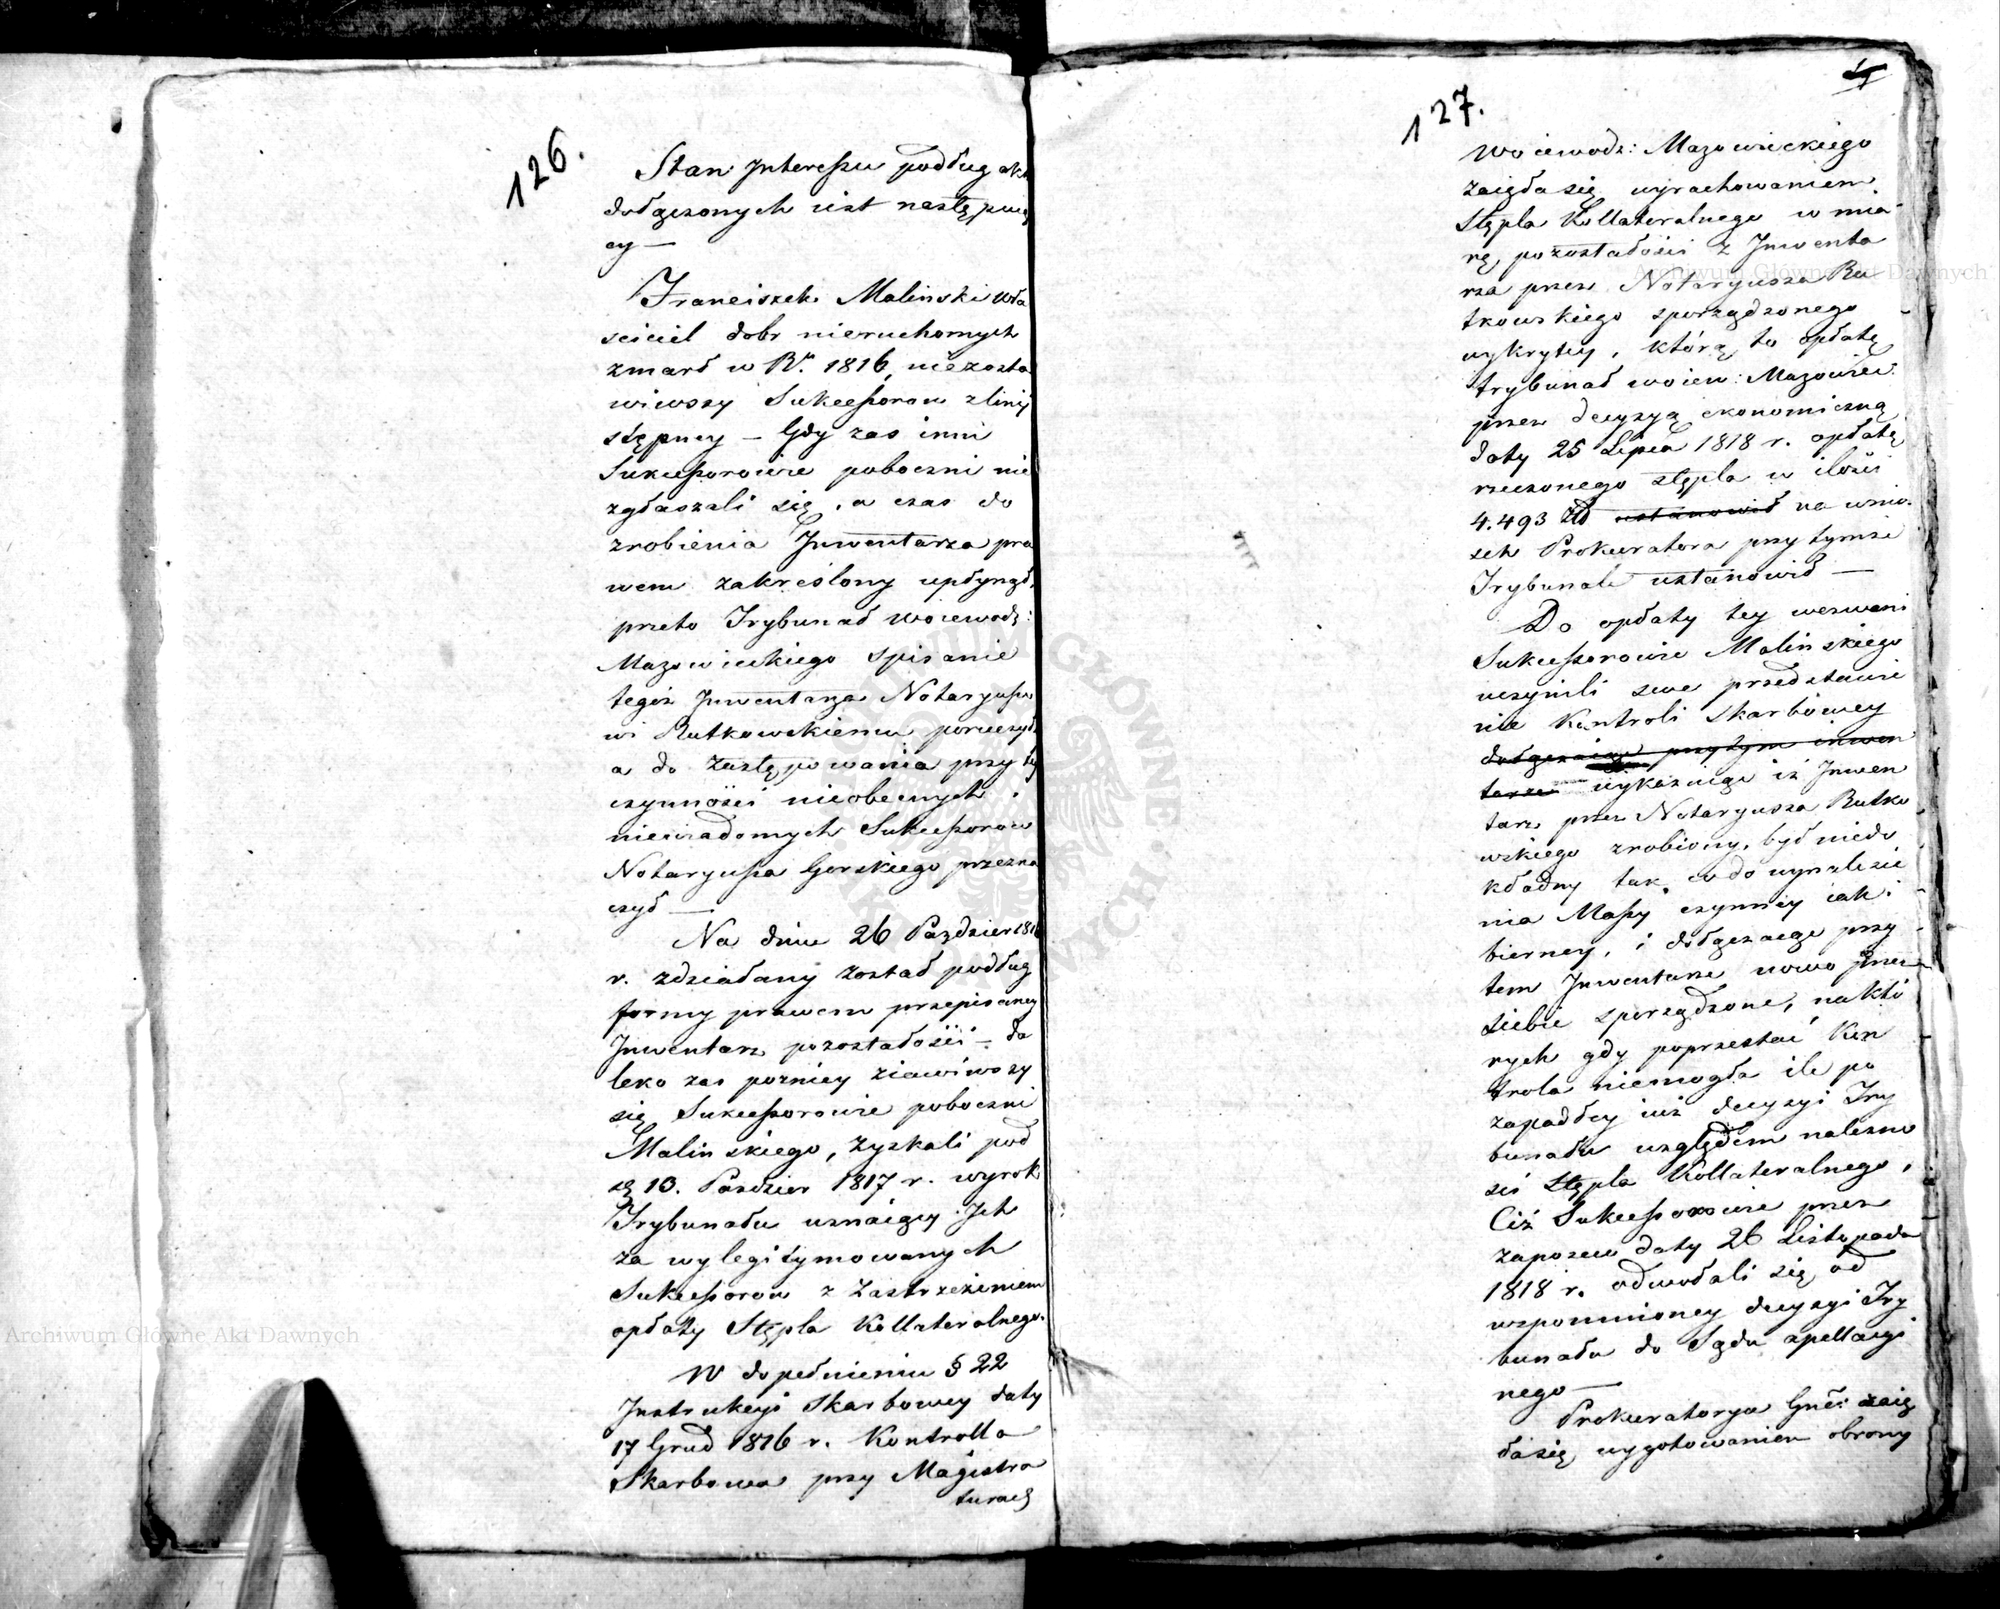 126.
Stan Interessu podług akt
dołączonych iest następuią
cy —
Franciszek Malinski wła
sciciel dobr nieruchomych
zmarł w R. 1816, niezosta
wiwszy Sukcessorow z linij
stępney — Gdy zas inni
Sukcessorowie poboczni nie
zgłaszali się, a czas do
zrobienia Inwentarza pra
wem zakreslony upłynął,
przeto Trybunał Woiewodz:
Mazowieckiego spisanie
tegoż Inwentarza Notaryuszo
wi Rutkowskiemu poruczył
a do zastępowania przy tey
czynności nieobecnych i
niewiadomych Sukcessorow
Notaryusza Gorskiego przezna
czył —
Na dniu 26 Pazdzier 1816
r. zdziałany został podług
formy prawem przepisaney
Inwentarz pozostałości — da
leko zas pozniey ziawiwszy
się Sukcessorowie poboczni
Malinskiego, zyskali pod
13. Pazdzier 1817 r. wyrok
Trybunału uznaiący Ich
za wylegitymowanych
Sukcessorow z zastrzeżeniem
opłaty Stępla Kollateralnego.
W dopełnieniu § 22
Instrukcyi Skarbowey daty
17 Grud 1816 r. Kontrolla
Skarbowa przy Magistra
turach
127.
4
Woiewodz: Mazowieckiego
zaięła się wyrachowaniem
Stępla Kollateralnego w mia
rę pozostałości z Inwenta
rza przez Notaryusza Ru
tkowskiego sporządzonego
wykrytey, którą to opłatę
Trybunał woiew: Mazowiec:
przez decyzyą ekonomiczną
daty 25 Lipca 1818 r. opłatę
rzeczonego stępla w ilości
4.493 Zł ustanowił na wnio
sek Prokuratora przy tymże
Trybunale ustanowił —
Do opłaty tey wezwani
Sukcessorowie Malinskiego
uczynili swe przedstawie
nie Kontroli Skarbowey
dołączaiąc przytym inwen
tarze wykazuiąc iż Inwen
tarz przez Notaryusza Rutko
wskiego zrobiony, był niedo
kładny tak, co do wynalezie
nia Massy czynney iak i
bierney, i dołączaiąc przy
tem Inwentarze nowo przez
siebie sporządzone, na któ
rych gdy poprzestać Kon
trola niemogła ile po
zapadłey iuż decyzyi Try
bunału względem należno
ści Stępla Kollateralnego,
Ciż Sukcessorowie przez
zapozew daty 26 Listopada
1818 r. odwołali się od
wspomnioney decyzyi Try
bunału do Sądu apellacyi
nego —
Prokuratorya Gnęł: zaię
ła się wygotowaniem obrony
Archiwum Główne Akt Dawnych
Archiwum Główne Akt Dawnych